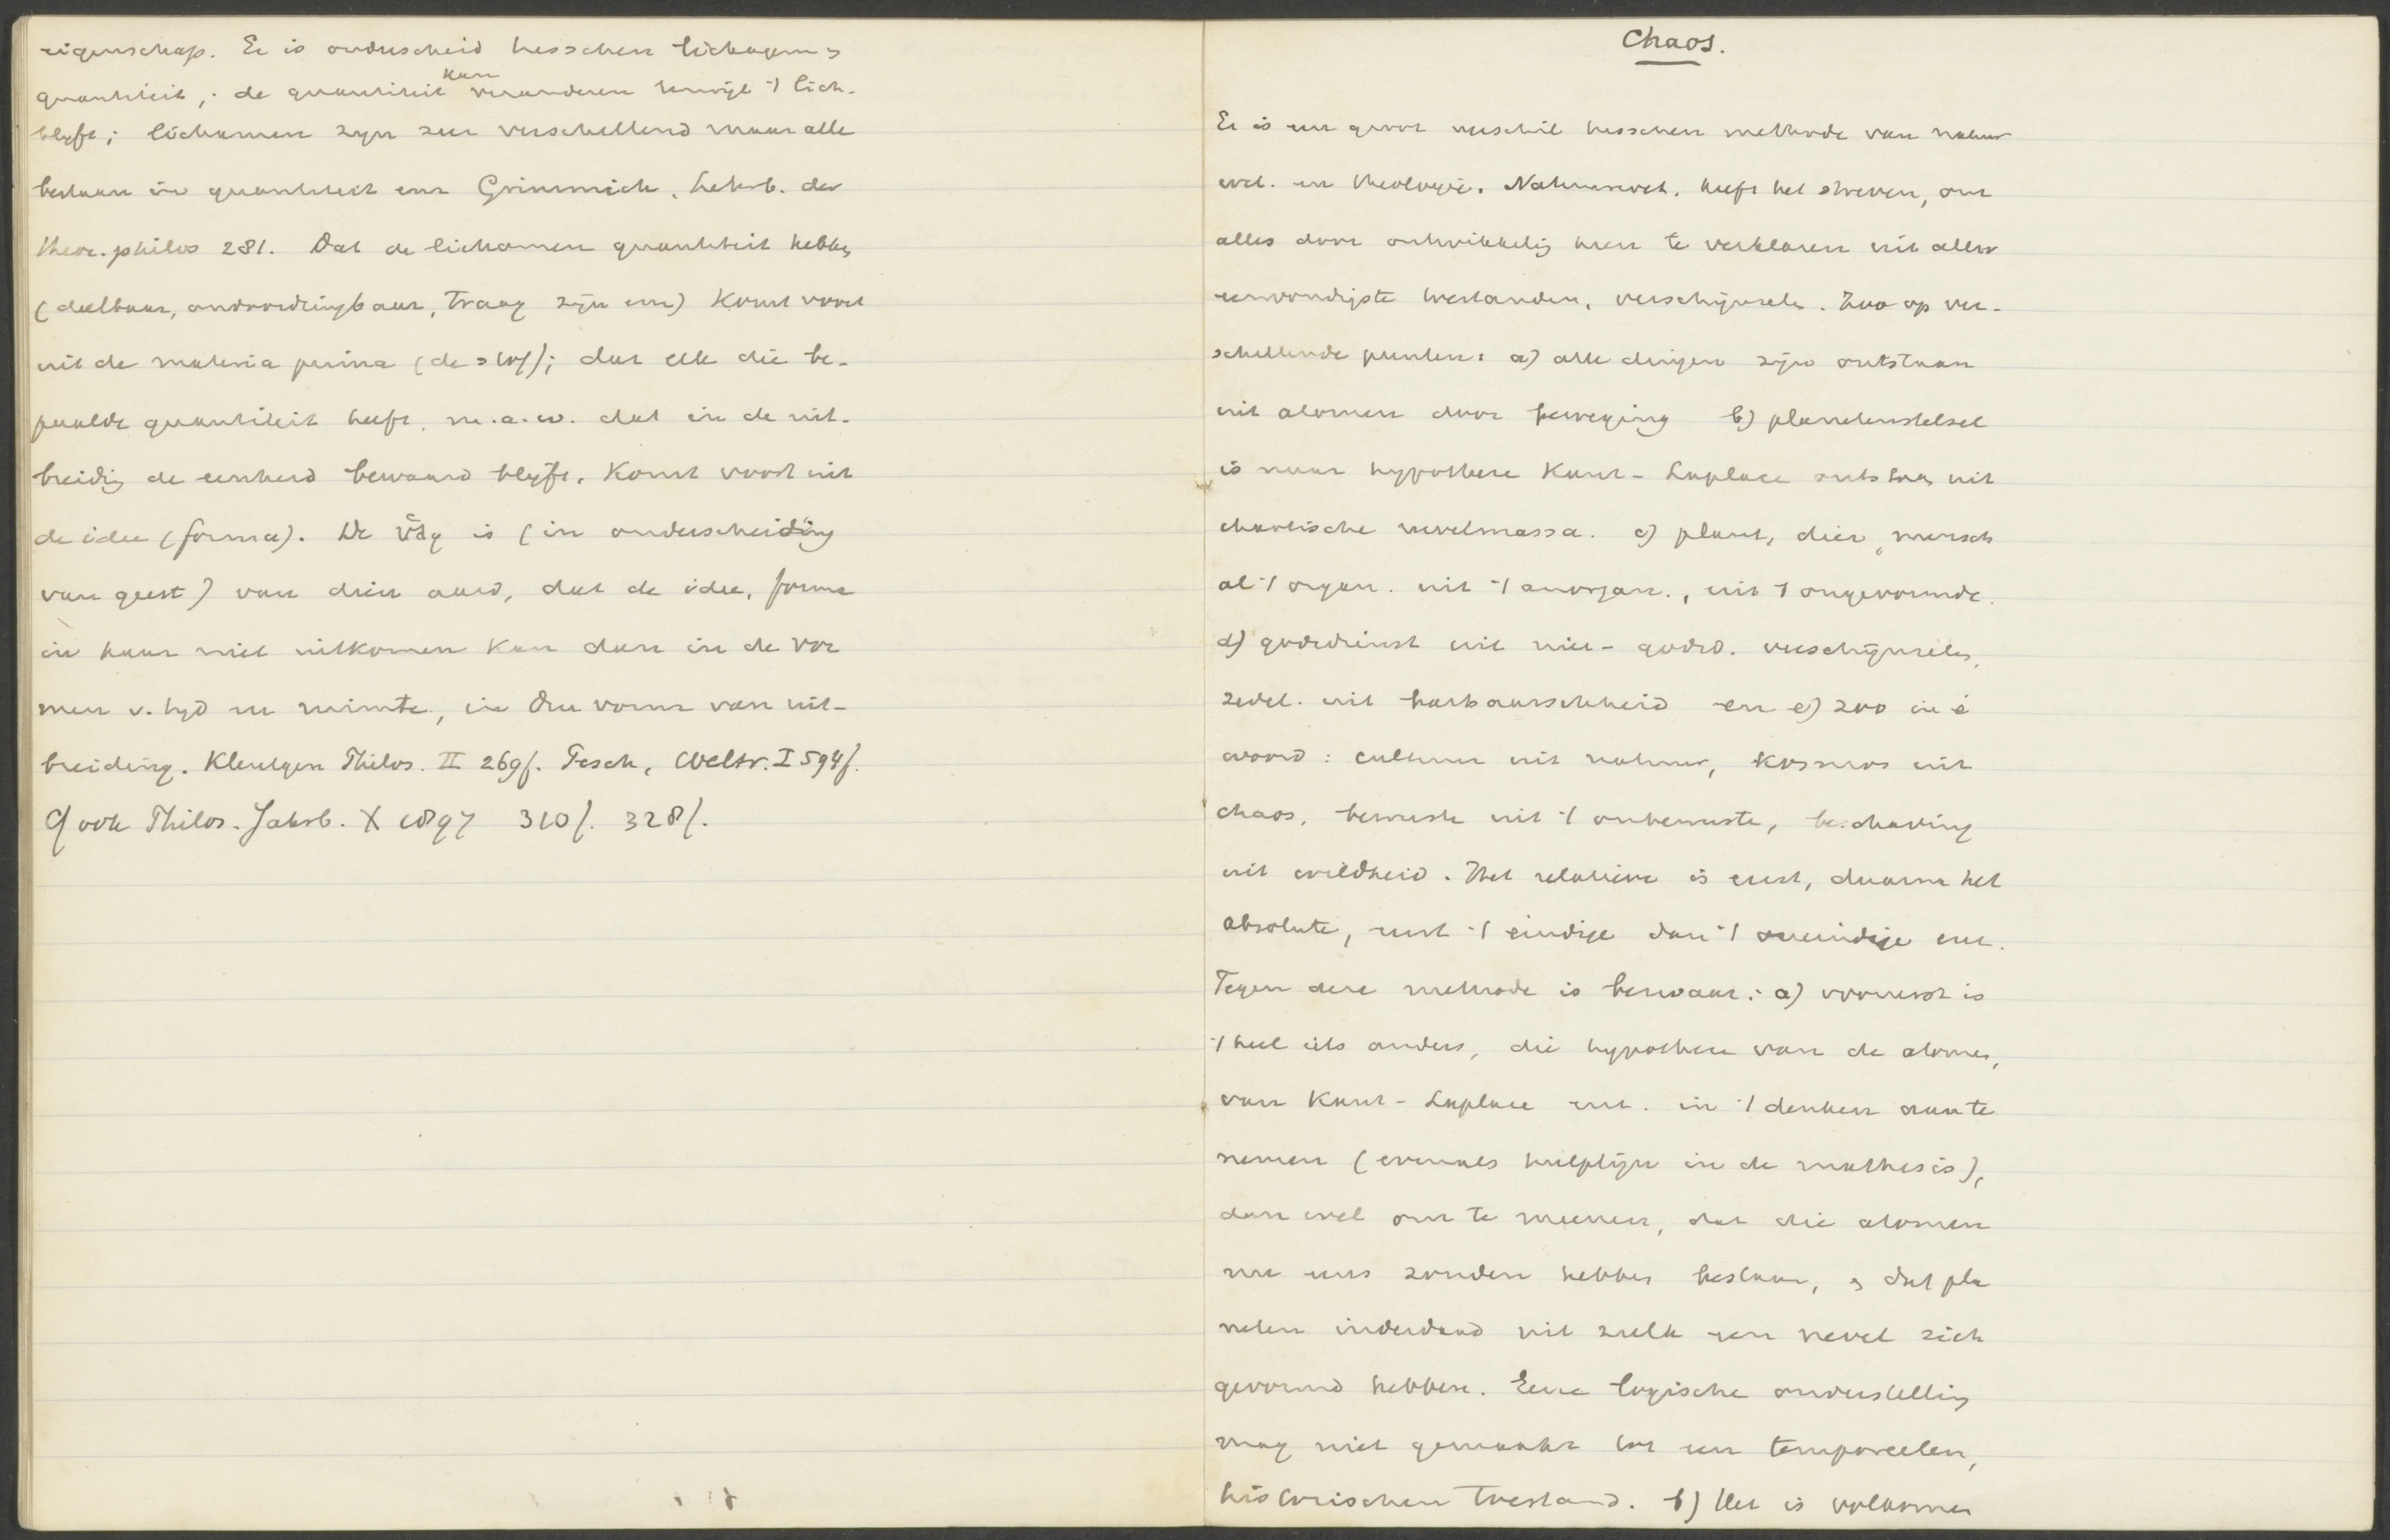 eigenschap. Er is onderscheid tusschen lichaam en
quantiteit; de quantiteit kan veranderen terwijl 't lich.
blijft; lichamen zijn zeer verschillend maar alle
bestaan in quantiteit enz Grimmich, Lehrb. der
theor. philos 281. Dat de lichamen quantiteit hebben
(deelbaar, ondoordringbaar, traag zijn enz) komt voort
uit de materia prima (de stof); dat elk die be-
paalde quantiteit heeft, m.a.w. dat in de uit-
breidig de eenheid bewaard blijft, komt voort uit
de idee (forma). De ὕλη is (in onderscheiding
van geest) van dien aard, dat de idee, forma
in haar niet uitkomen kan dan in de vor
men v. tijd en ruimte, in den vorm van uit-
breiding. Kleutgen Philos. II 269f. Pesch, Weltr. I 594f.
Cf ook Philos. Jahrb. X 1897 310f. 328f.
Chaos.
Er is een groot verschil tusschen methode van natuur
wet. en theologie. Natuurwet. heeft het streven, om
alles door ontwikkelig heen te verklaren uit aller
eenvoudigste toestanden, verschijnselen. Zoo op ver-
schillende punten: a) alle dingen zijn ontstaan
uit atomen door beweging b) planetenstelsel
is naar hypothese Kant-Laplace ontstaan uit
chaotische nevelmassa. c) plant, dier, mensch
al 't organ. uit 't anorgan., uit 't ongevormde.
d) godsdienst uit niet-godsd. verschijnselen,
zedel. uit barbaarschheid en e) zoo in é
woord: cultuur uit natuur, kosmos uit
chaos, bewuste uit 't onbewuste, beschaving
uit wildheid. Het relatieve is eerst, daarna het
absolute, eerst 't eindige dan 't oneindige enz.
Tegen deze methode is bezwaar: a) vooreerst is
't heel iets anders, die hypothese van de atomen,
van Kant-Laplace enz. in 't denken aan te
nemen (evenals hulplijn in de mathesis),
dan wel om te meenen, dat die atomen
nu eens zonden hebben bestaan, en dat pla
neten inderdaad uit zulk een nevel zich
gevormd hebben. Eene logische onderstelling
mag niet gemaakt tot een temporeelen,
historischen toestand. b) Het is volkomen